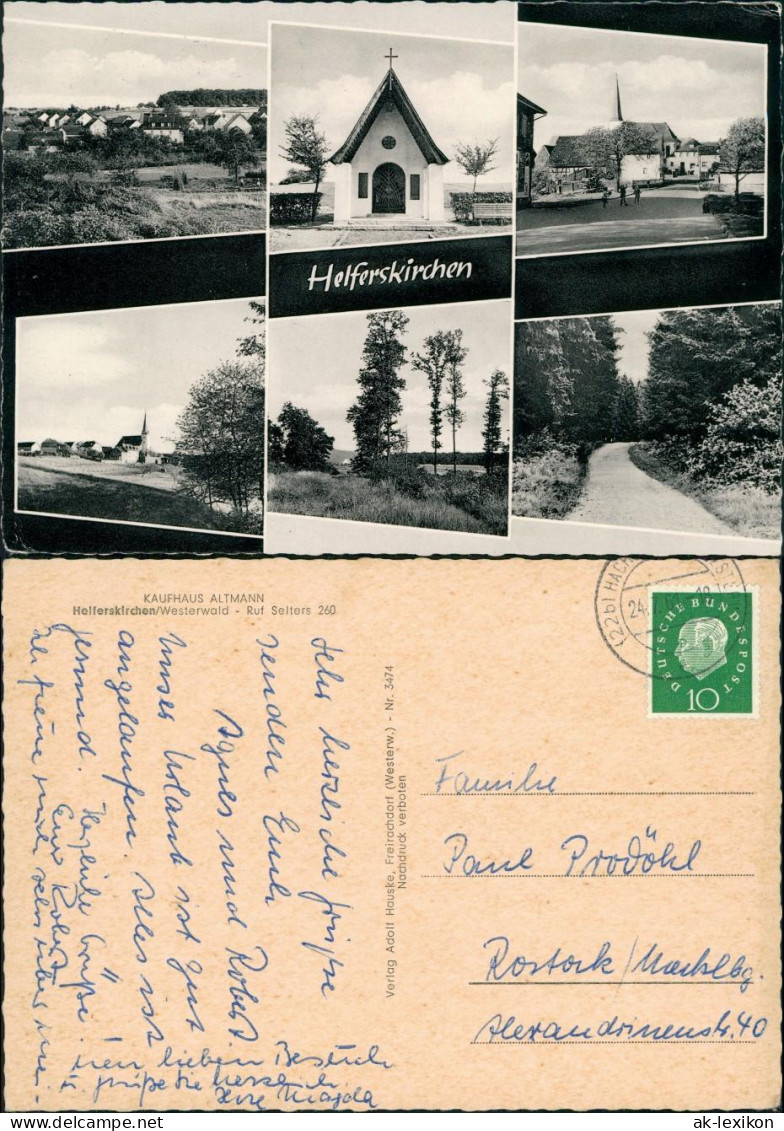 Helferskirchen
KAUFHAUS ALTMANN
Helferskirchen/Westerwald - Ruf Selters 260
Sehr herzliche Grüße
senden Euch
Agnes und Robert.
Unser Urlaub ist gut
angelaufen. Alles ist
gesund. Herzliche Grüße
Euer Robert
Ich freue mich sehr über mei-
nen lieben Besuch
u. grüße Sie herzlich
Ihre Magda
Verlag Adolf Hauske, Freirachdorf (Westerw.) - Nr. 3474
Nachdruck verboten
(22b) HACH
24.7.
DEUTSCHE BUNDESPOST
10
Familie
Paul Prodöhl
Rostock/Mecklbg.
Alexandrinenstr. 40
ak-lexikon